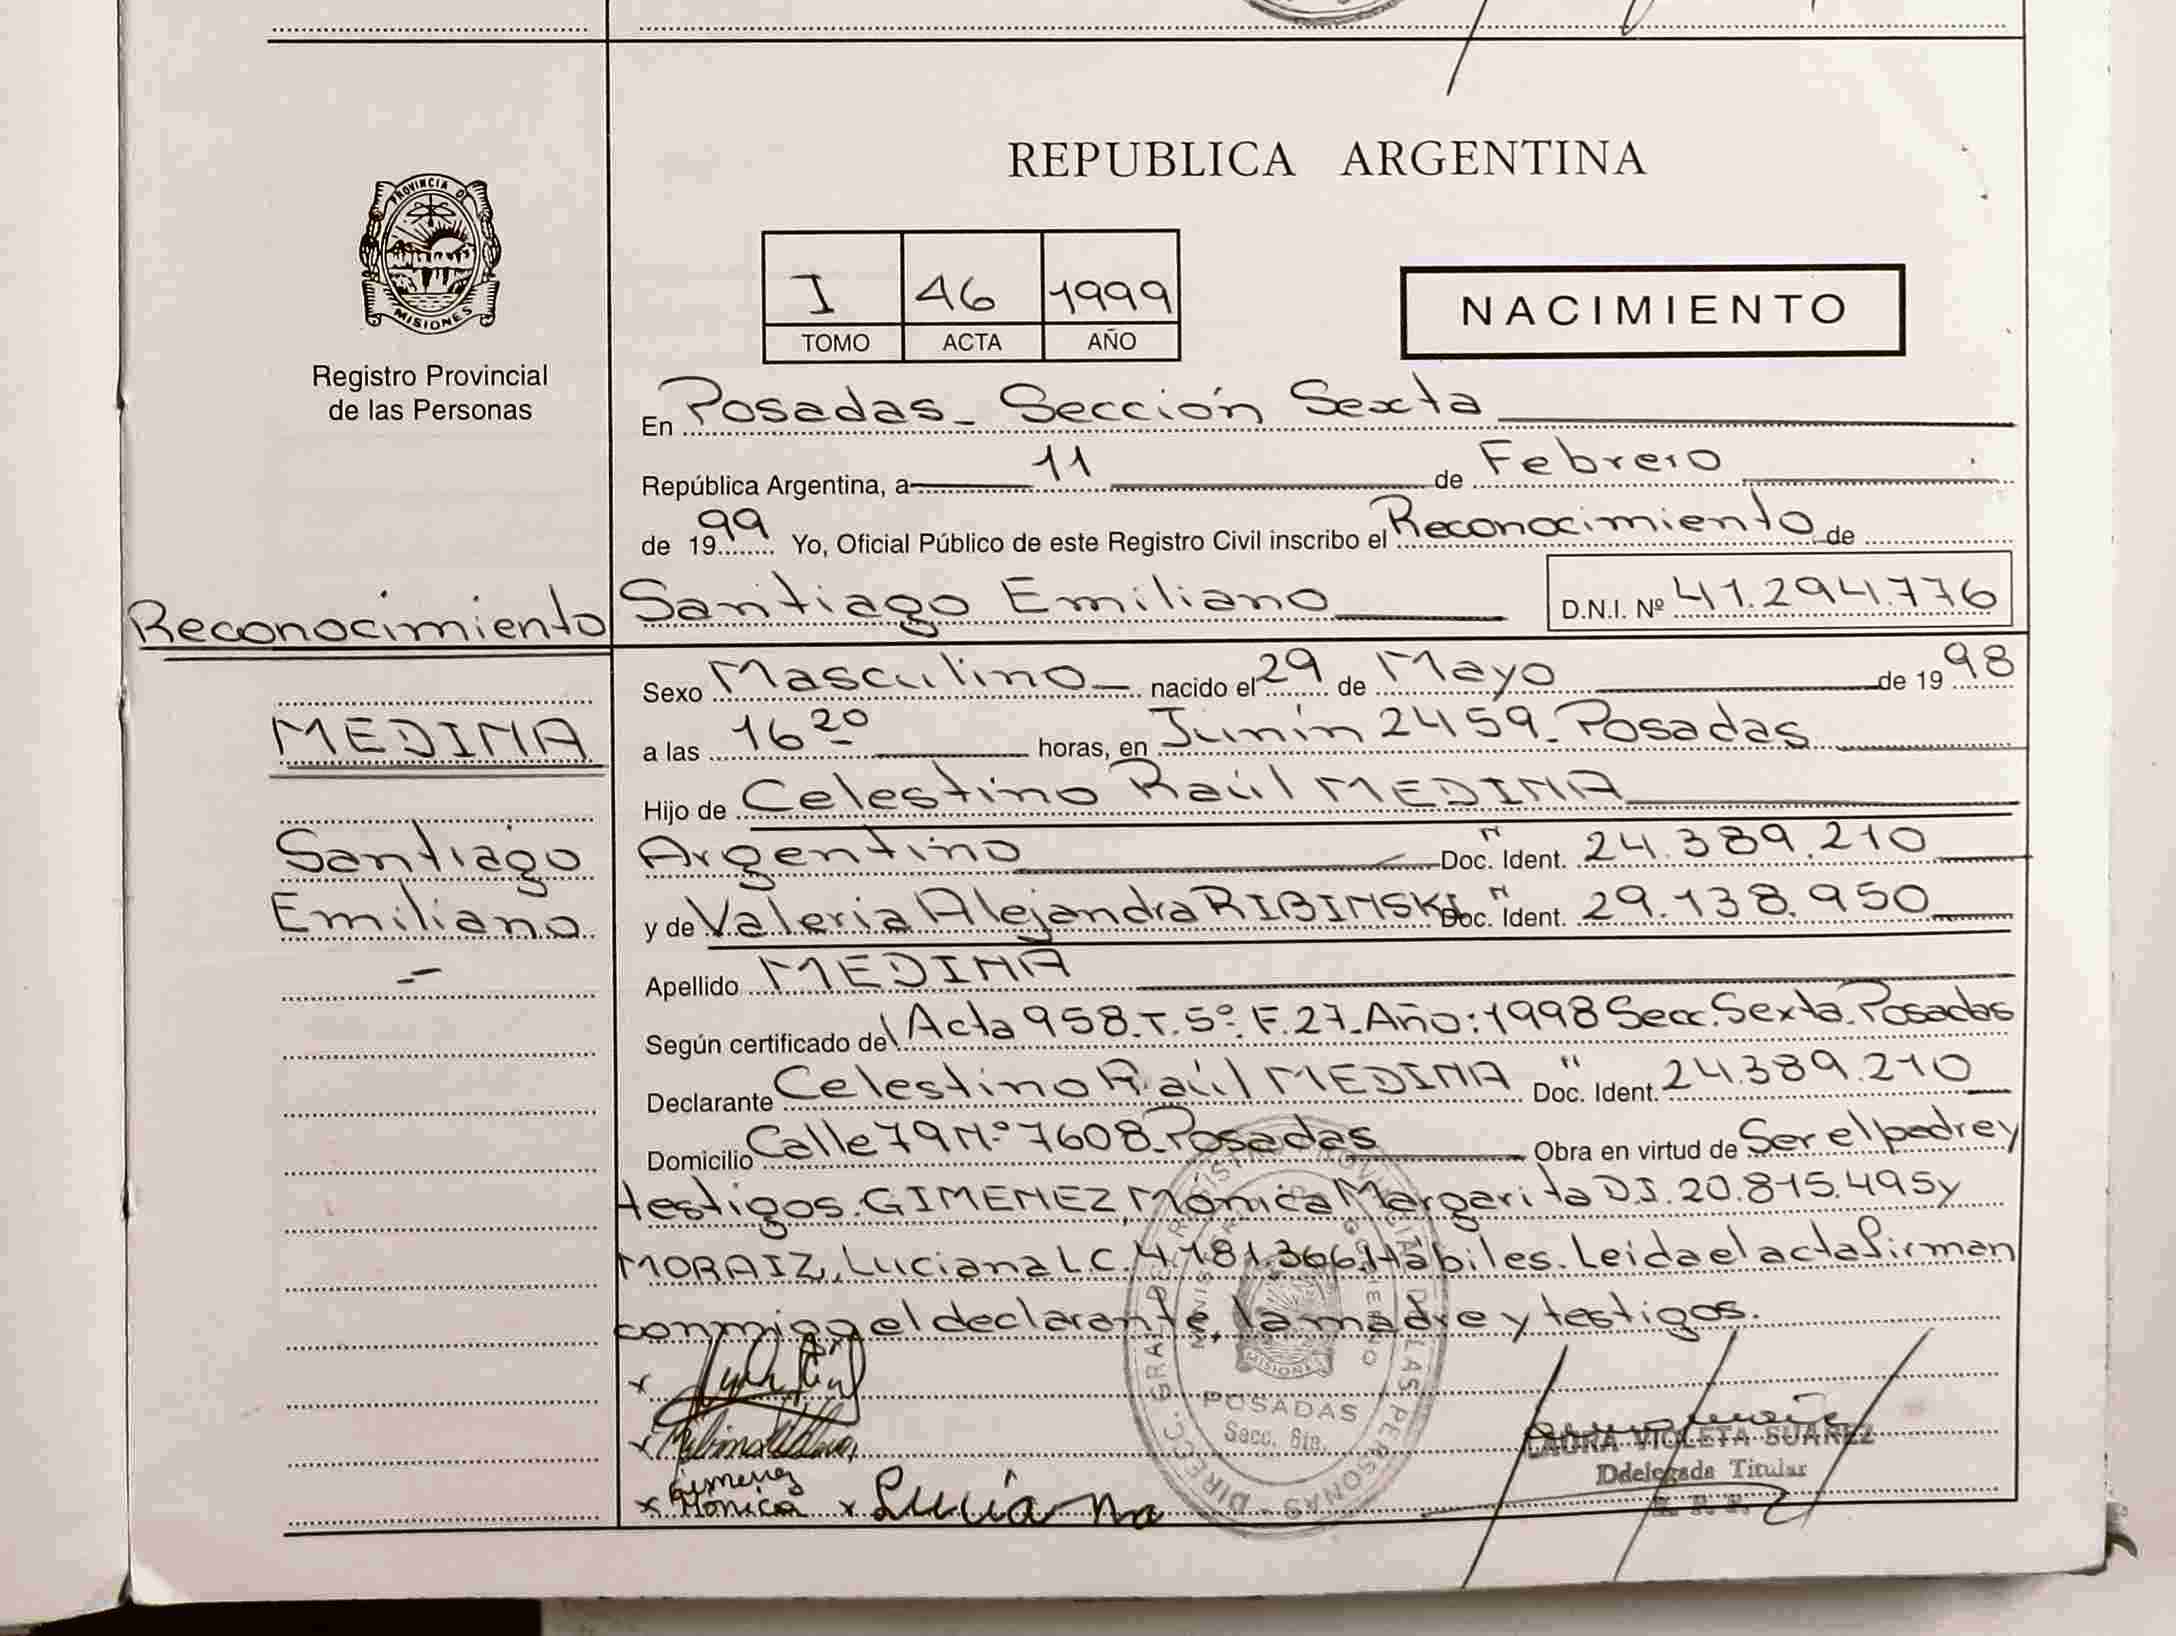 PROVINCIA DE
MISIONES
Registro Provincial
de las Personas
REPUBLICA ARGENTINA
I 46 1999
TOMO ACTA AÑO
NACIMIENTO
En Posadas_ Sección Sexta
República Argentina, a 11 de Febrero
de 1999 Yo, Oficial Público de este Registro Civil inscribo el Reconocimiento de
Reconocimiento Santiago Emiliano D.N.I. Nº 41.294.776
Sexo Masculino nacido el 29 de Mayo de 1998
MEDINA
a las 16 20 horas, en Junín 2459_ Posadas
Hijo de Celestino Raúl MEDINA
Santiago
Emiliano
Argentino Doc. Ident. 24.389.210
y de Valeria Alejandra RIBINSKI Doc. Ident. 29.138.950
Apellido MEDINA
Según certificado del Acta 958_T.5º_F.27_Año:1998 Secc.Sexta_Posadas
Declarante Celestino Raúl MEDINA " Doc. Ident. 24.389.210
Domicilio Calle 79 N.º 7608_Posadas Obra en virtud de Ser el padre y
testigos. GIMENEZ, Mónica Margarita D.I. 20.815.495 y
MORAIZ, Luciana L.C. 4.181.366, Hábiles. Leida el acta firman
conmigo el declarante, la madre y testigos.
x
x
x Gimenez
Mónica x Luciana
DIRECC. GRAL. DE REGISTRO PROVINCIAL DE LAS PERSONAS
MINISTERIO DE GOBIERNO
MISIONES
POSADAS
Secc. 6ta.
LAURA VIOLETA SUAREZ
Ddelegada Titular
R. P. P.